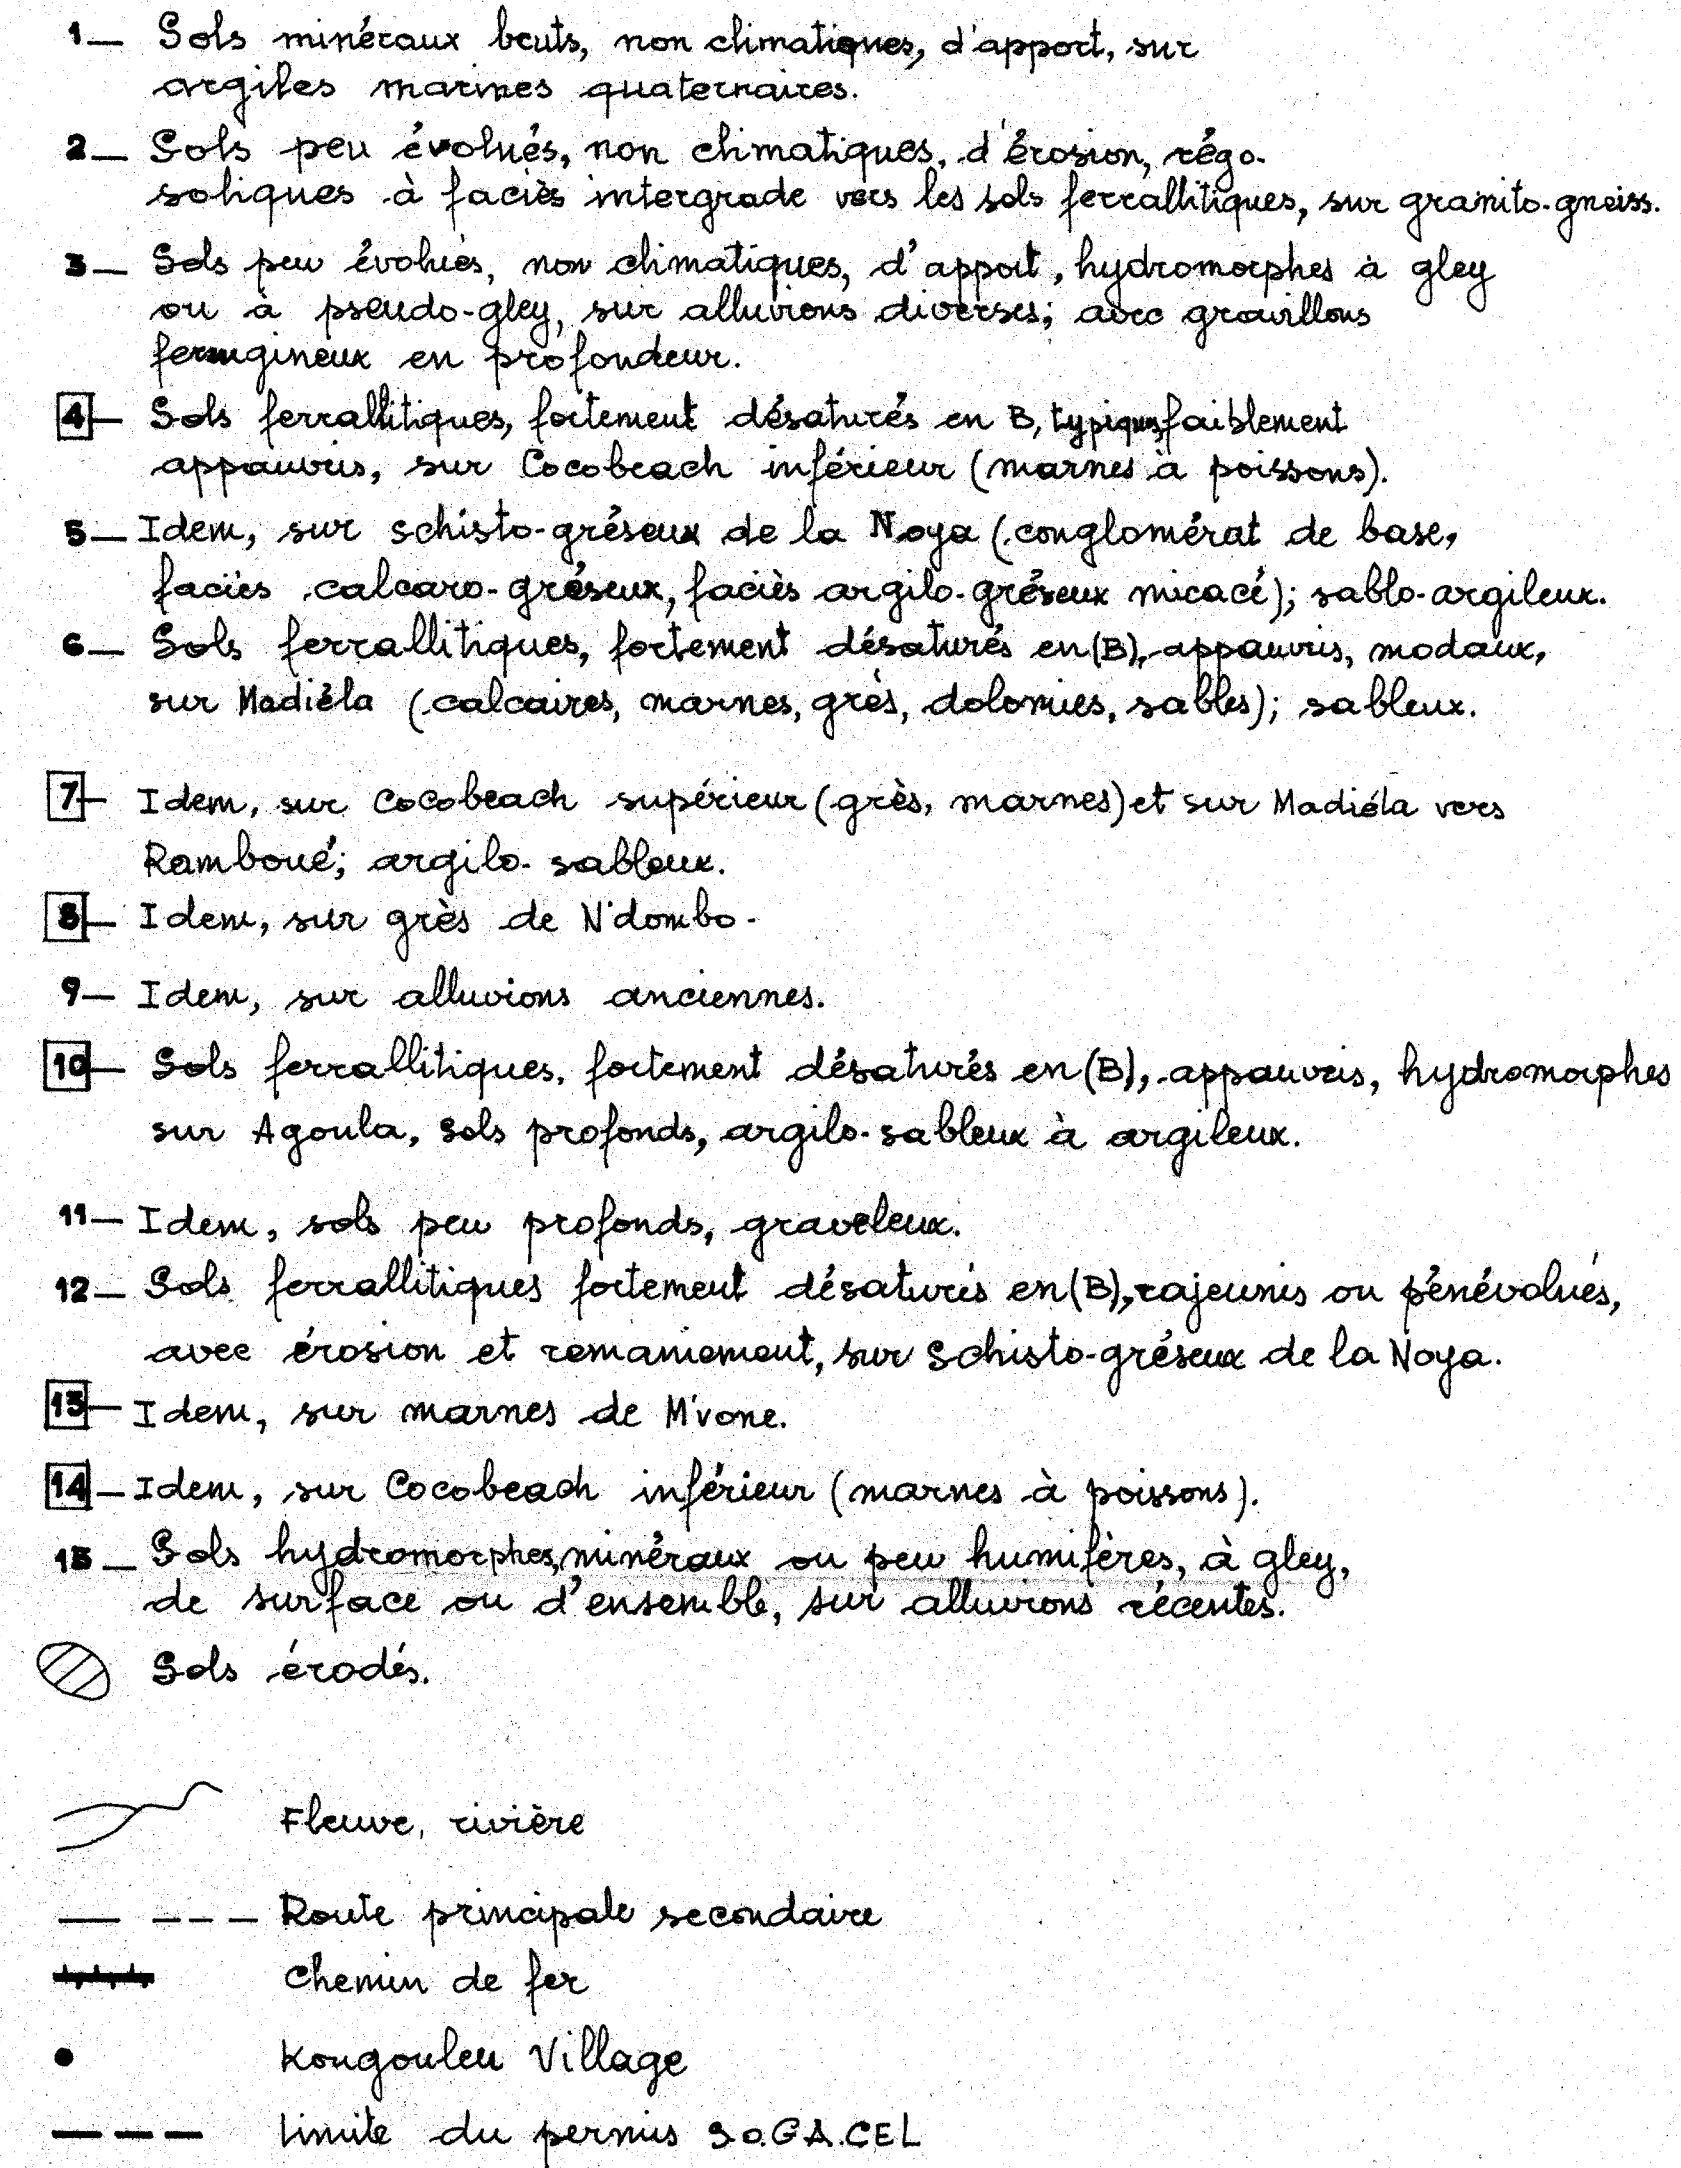 1_ Sols minéraux bruts, non climatiques, d'apport, sur
argiles marines quaternaires.
2_ Sols peu évolués, non climatiques, d'érosion, régo-
soliques à faciès intergrade vers les sols ferrallitiques, sur granito-gneiss.
3_ Sols peu évolués, non climatiques, d'apport, hydromorphes à gley
ou à pseudo-gley, sur alluvions diverses; avec gravillons
ferrugineux en profondeur.
4_ Sols ferrallitiques, fortement désaturés en B, typiques, faiblement
appauvris, sur Cocobeach inférieur (marnes à poissons).
5_ Idem, sur schisto-gréseux de la Noya (conglomérat de base,
faciès calcaro-gréseux, faciès argilo-gréseux micacé); sablo-argileux.
6_ Sols ferrallitiques, fortement désaturés en (B), appauvris, modaux,
sur Madiéla (calcaires, marnes, grès, dolomies, sables); sableux.
7_ Idem, sur Cocobeach supérieur (grès, marnes) et sur Madiéla vers
Ramboué; argilo-sableux.
8_ Idem, sur grès de N'dombo.
9_ Idem, sur alluvions anciennes.
10_ Sols ferrallitiques, fortement désaturés en (B), appauvris, hydromorphes
sur Agoula, sols profonds, argilo-sableux à argileux.
11_ Idem, sols peu profonds, graveleux.
12_ Sols ferrallitiques fortement désaturés en (B), rajeunis ou pénévolués,
avec érosion et remaniement, sur Schisto-gréseux de la Noya.
13_ Idem, sur marnes de M'vone.
14_ Idem, sur Cocobeach inférieur (marnes à poissons).
15_ Sols hydromorphes, minéraux ou peu humifères, à gley,
de surface ou d'ensemble, sur alluvions récentes.
Sols érodés.
Fleuve, rivière
Route principale secondaire
Chemin de fer
Kougouleu Village
Limite du permis SO.GA.CEL